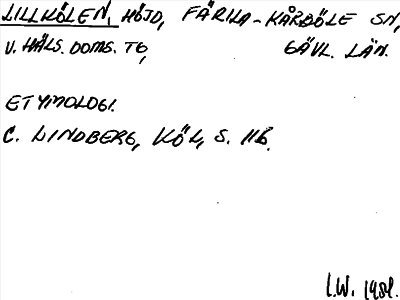 LILLKÖLEN, HÖJD, FÄRILA-KÅRBÖLE SN,
V. HÄLS. DOMS. TG, GÄVL. LÄN.
ETYMOLOGI.
C. LINDBERG, KÖL, S. 116.
I.W. 1984.